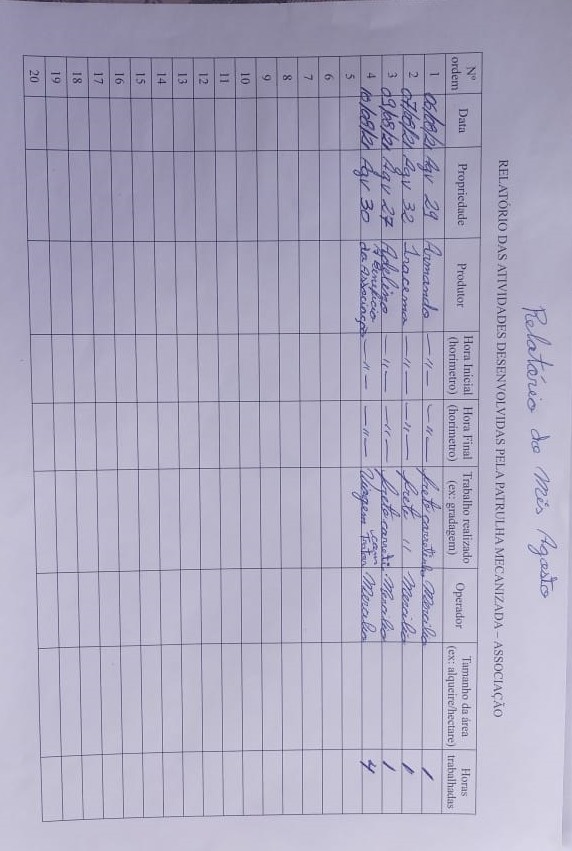 Relatório do Mês Agosto
RELATÓRIO DAS ATIVIDADES DESENVOLVIDAS PELA PATRULHA MECANIZADA – ASSOCIAÇÃO
Nº ordem Data Propriedade Produtor Hora Inicial (horimetro) Hora Final (horimetro) Trabalho realizado (ex: gradagem) Operador Tamanho da área (ex: alqueire/hectare) Horas trabalhadas
1 06/08/21 Agv 29 Armando —"— —"— frete carretinha 1
2 07/08/21 Agv 32 Iracema —"— —"— frete " 1
3 09/08/21 Agv 27 Adelino —"— —"— frete 1
4 10/08/21 Agv 30 A Beneficio da Associação —"— —"— Viagem com Trator 4
5
6
7
8
9
10
11
12
13
14
15
16
17
18
19
20